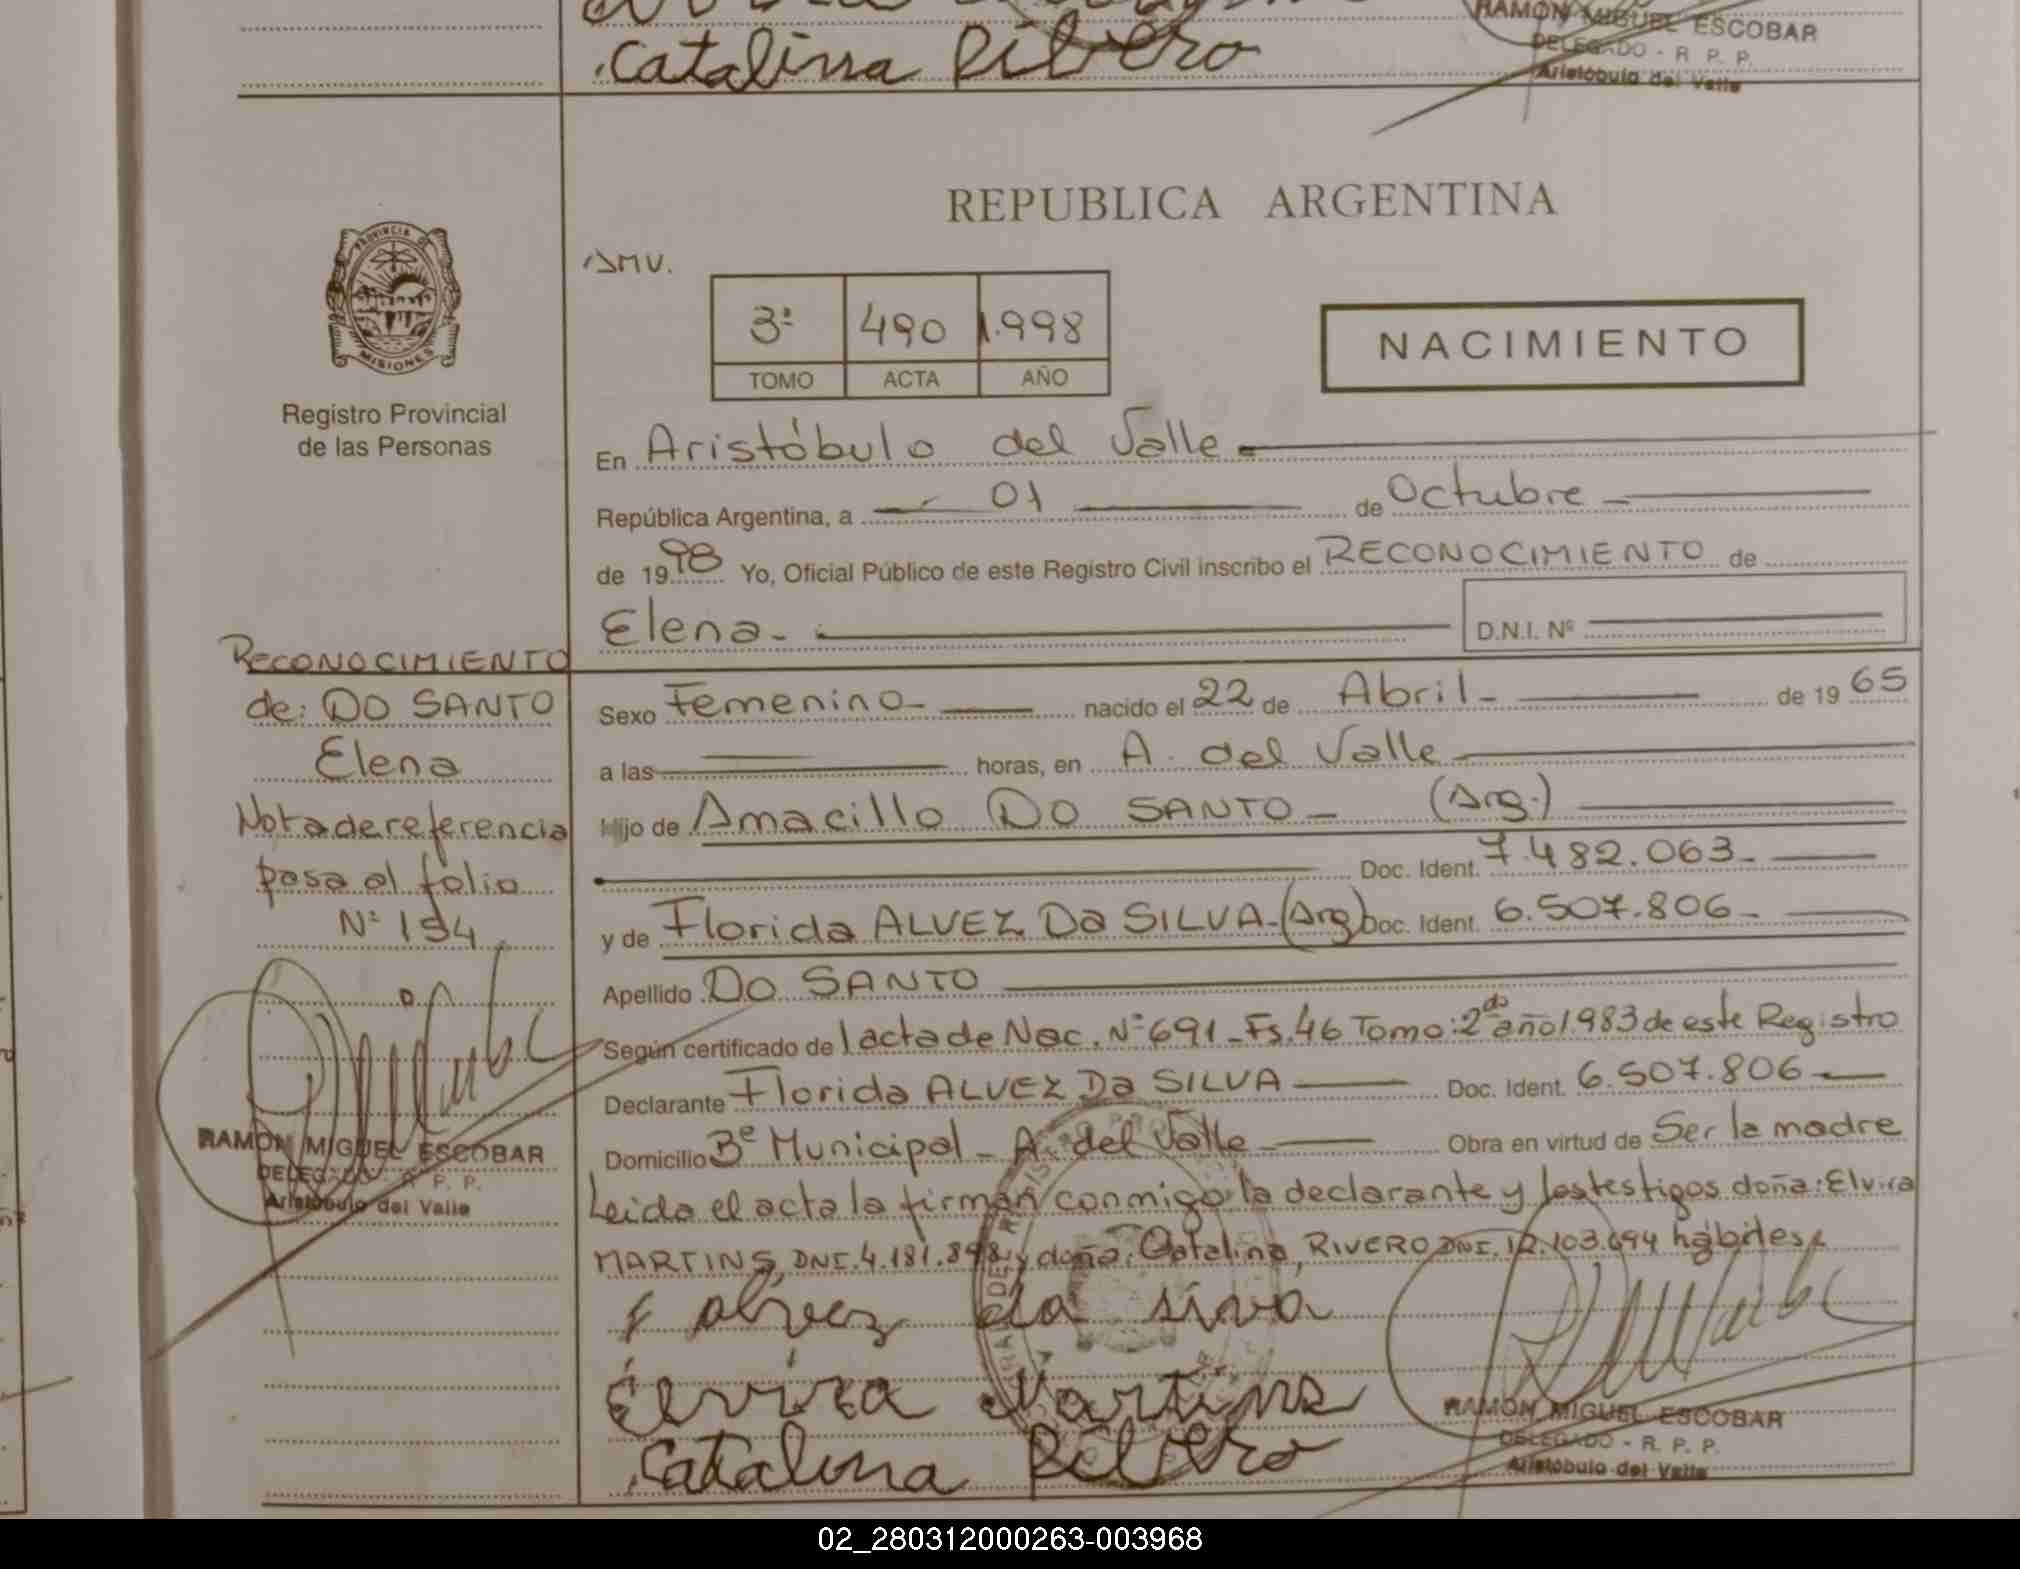 Catalina Rivero
RAMON MIGUEL ESCOBAR
DELEGADO - R. P. P.
Aristóbulo del Valle
REPUBLICA ARGENTINA
PROVINCIA DE
MISIONES
Registro Provincial
de las Personas
3º 490 1.998
TOMO ACTA AÑO
NACIMIENTO
En Aristóbulo del Valle
República Argentina, a 01 de Octubre
de 1998 Yo, Oficial Público de este Registro Civil inscribo el RECONOCIMIENTO de
Elena- D.N.I. Nº
RECONOCIMIENTO
de: DO SANTO
Elena
Nota de referencia
pasa al folio
Nº 194
RAMON MIGUEL ESCOBAR
DELEGADO - R. P. P.
Aristóbulo del Valle
Sexo Femenino- nacido el 22 de Abril- de 1965
a las horas, en A. del Valle
Hijo de Amacillo DO SANTO - (Arg.)
Doc. Ident. 7.482.063-
y de Florida ALVEZ Da SILVA-(Arg) Doc. Ident. 6.507.806-
Apellido DO SANTO
Según certificado de l acta de Nac. Nº 691-Fs.46 Tomo:2do año 1.983 de este Registro
Declarante Florida ALVEZ Da SILVA Doc. Ident. 6.507.806
Domicilio Bº Municipal - A. del Valle Obra en virtud de Ser la madre
Leida el acta la firman conmigo la declarante y los testigos doña: Elvira
MARTINS, DNI.4.181.898 y doña: Catalina, RIVERO DNI.12.103.694 hábiles
f alvez da siva
Elvira Martins
Catalina Rivero
RAMON MIGUEL ESCOBAR
DELEGADO - R. P. P.
Aristóbulo del Valle
02_280312000263-003968